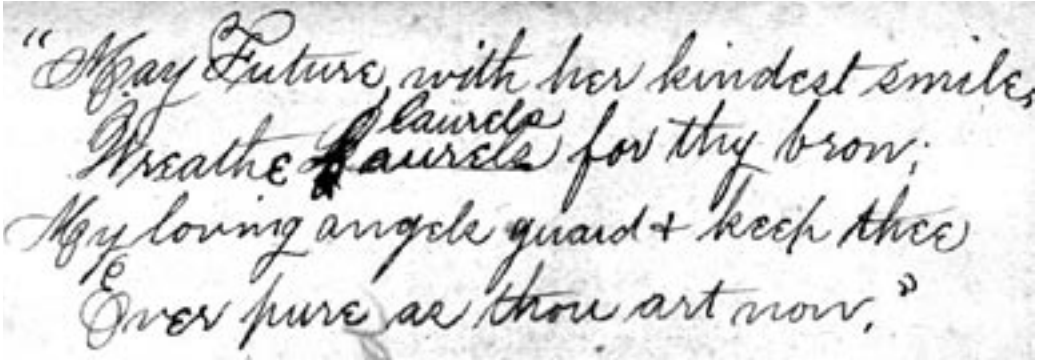 "May Future, with her kindest smile,
laurels
Wreathe Laurels for thy brow;
My loving angels guard & keep thee
Ever pure as thou art now."